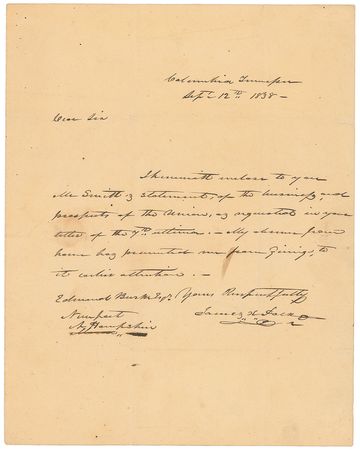 Columbia Tennessee
Sept. 12th 1838 –
Dear Sir
I herewith enclose to you
Mr Smith's statement, of the business, and
prospects of the Union, as requested in your
letter of the 7th ultimo. – My absence from
home has prevented me from giving, to
it earlier attention. –
Edmund Burke Esqr. Yours Respectfully
Newport James K Polk
N. Hampshire